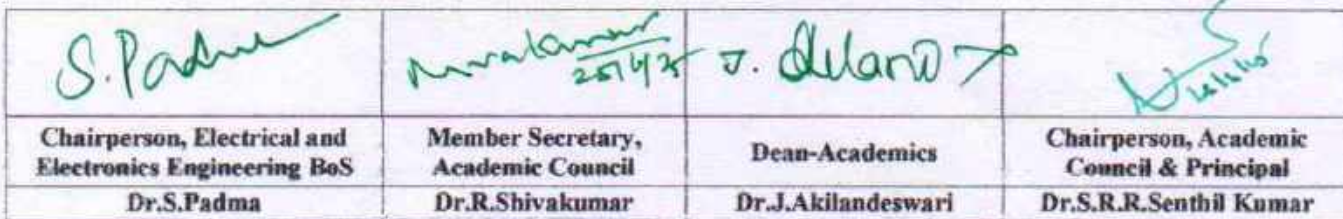 S. Padma
25/4/25
Chairperson, Electrical and
Electronics Engineering BoS
Member Secretary,
Academic Council
Dean-Academics
Chairperson, Academic
Council & Principal
Dr.S.Padma
Dr.R.Shivakumar
Dr.J.Akilandeswari
Dr.S.R.R.Senthil Kumar